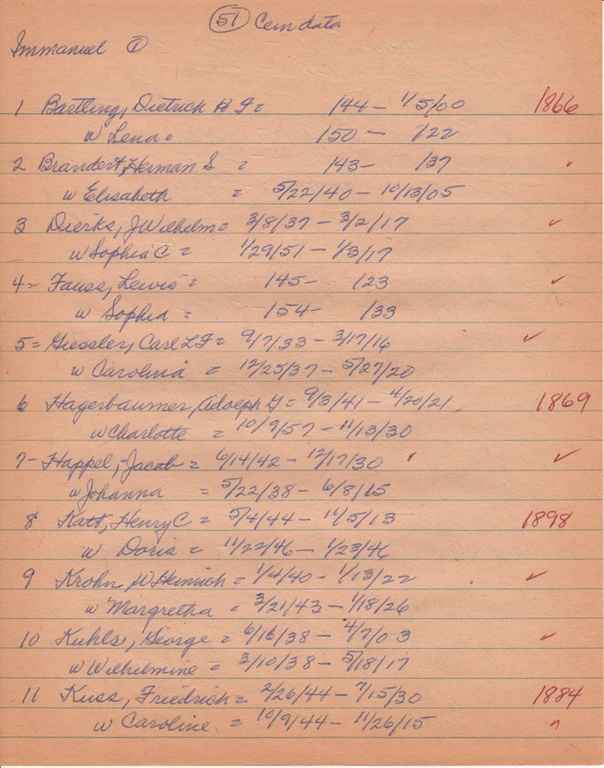 (51) Cem data
Immanuel ①
1 Bartling, Dietrich H F = 144 – 1/5/00 1866
w Lena = 150 – 122
2 Brandert, Herman S = 143 – 137 ✓
w Elisabeth = 5/22/40 – 10/13/05
3 Dierks, J Wilhelm = 3/8/37 – 3/2/17 ✓
w Sophia C = 1/29/51 – 1/3/17
4 – Fauss, Lewis = 145 – 123 ✓
w Sophia = 154 – 133
5 = Giessler, Carl L F = 9/7/33 – 3/17/16 ✓
w Carolina = 12/25/37 – 5/27/20
6 Hagerbaumer, Adolph G = 9/3/41 – 4/20/21 1869
w Charlotte = 10/9/57 – 11/13/30
7 – Happel, Jacob = 6/14/42 – 12/17/30 ✓ ✓
w Johanna = 5/22/38 – 6/8/15
8 Katt, Henry C = 5/4/44 – 11/5/13 1898
w Doris = 11/22/46 – 1/23/46
9 Krohn, W Heinrich = 1/4/40 – 1/13/22 ✓
w Margretha = 3/21/43 – 1/18/26
10 Kuhls, George = 6/16/38 – 4/7/03 ✓
w Wilhilmine = 3/10/38 – 5/18/17
11 Kuss, Friedrich = 2/26/44 – 7/15/30 1884
w Caroline = 10/9/44 – 11/26/15